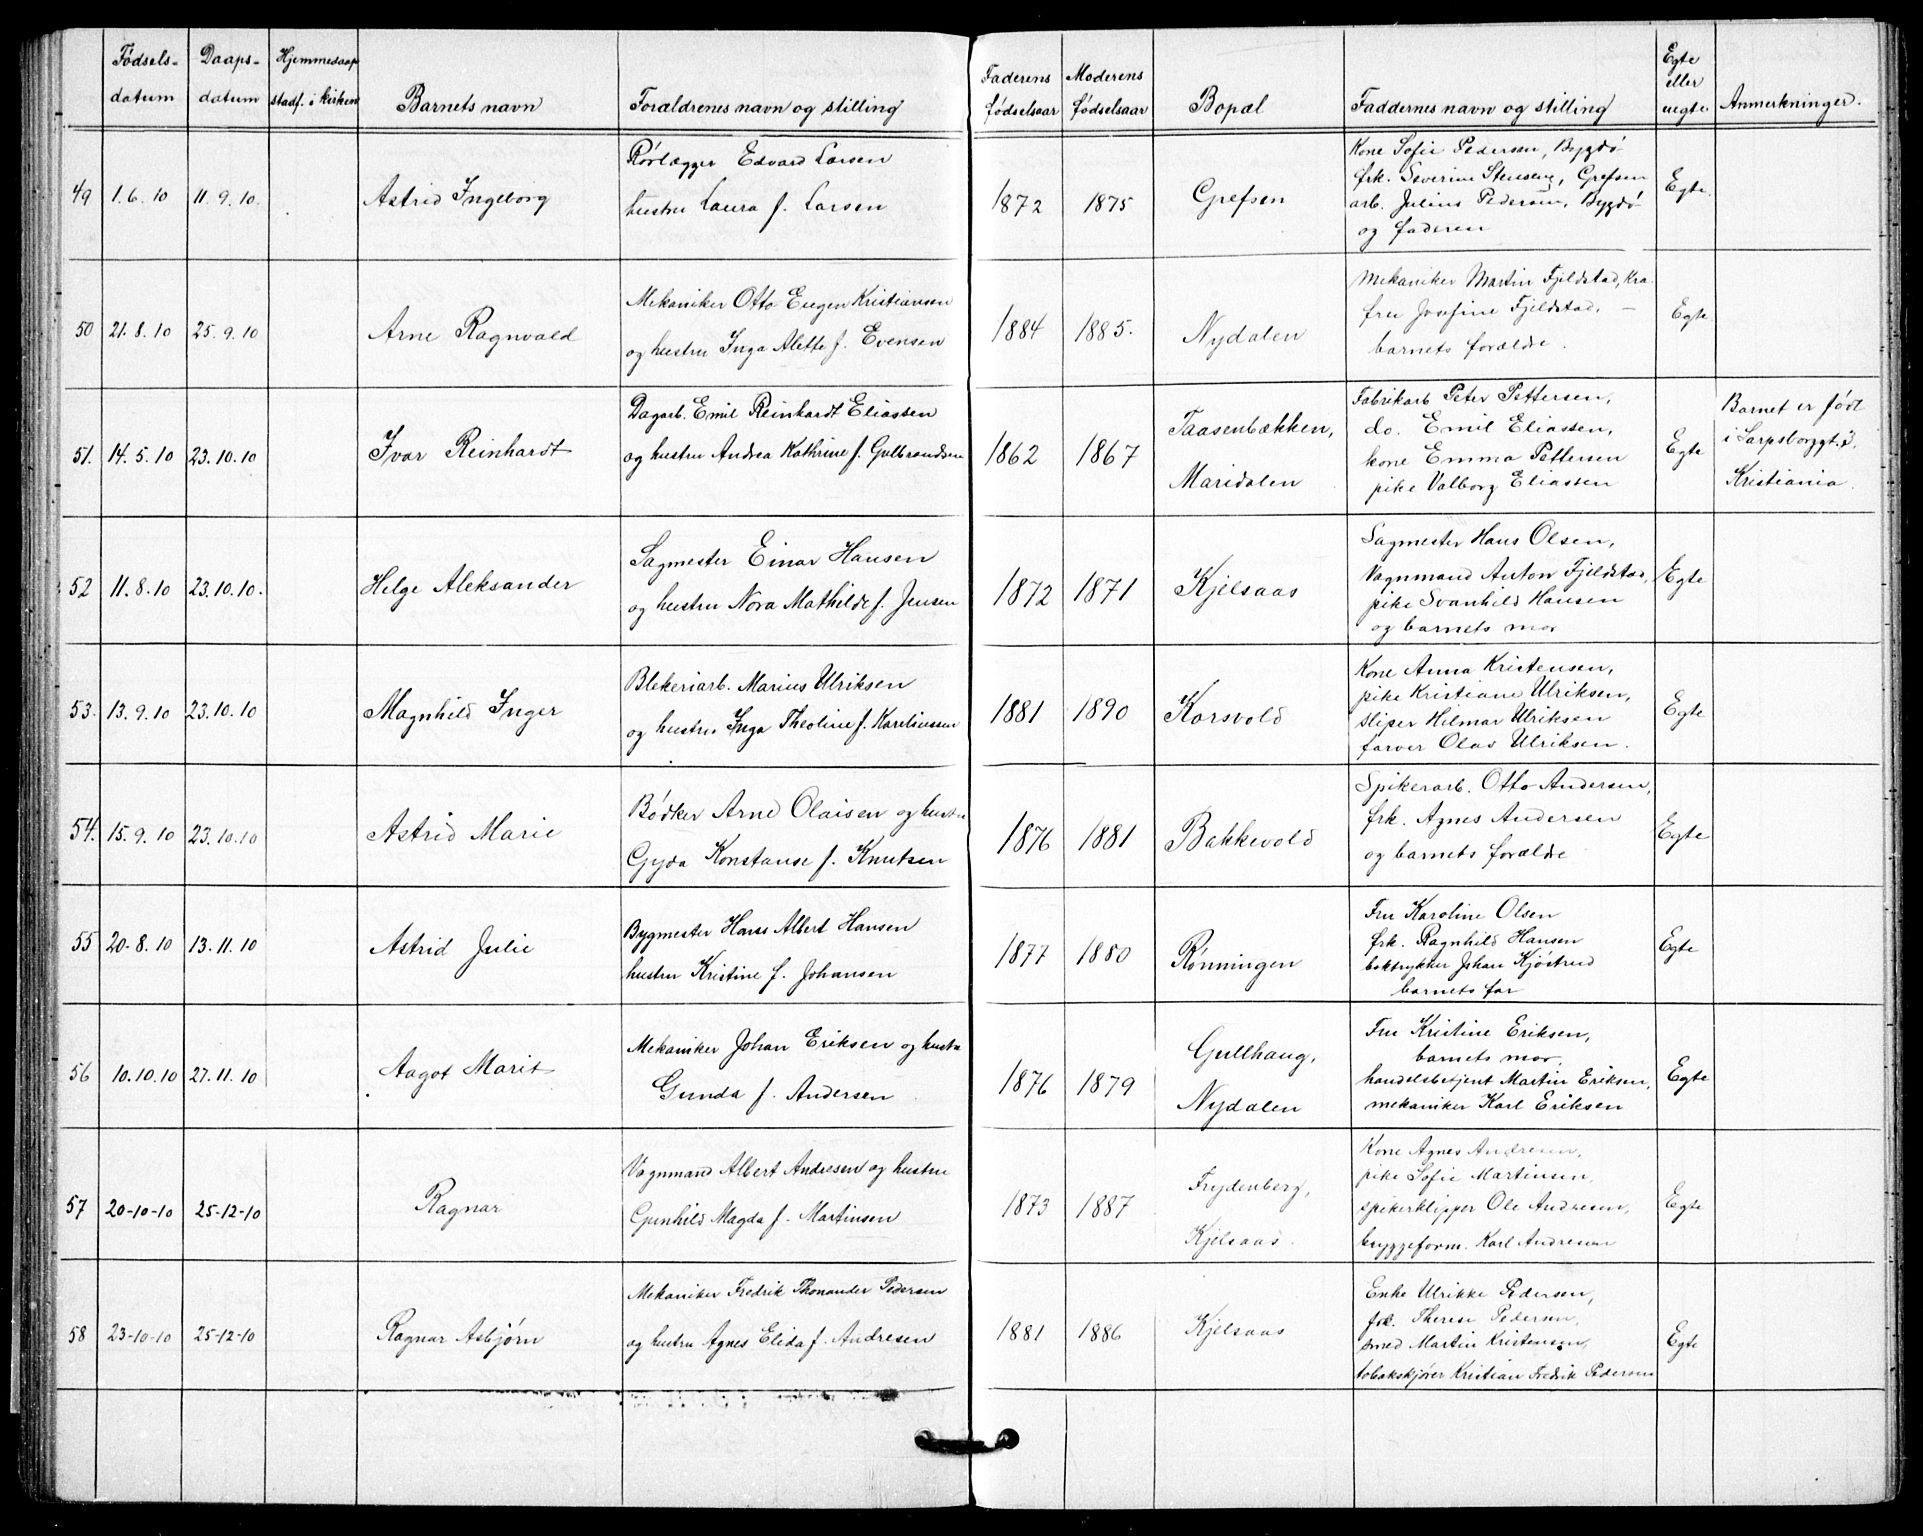 Fødsels-datum | Daaps-datum | Hjemmedaap stadf. i kirken | Barnets navn | Forældrenes navn og stilling | Faderens fødselsaar | Moderens fødselsaar | Bopæl | Faddernes navn og stilling | Egte eller uegte | Anmerkninger.
49 | 1.6.10 | 11.9.10. | Astrid Ingeborg
Rørlægger Edvard Larsen
hustru Laura f. Larsen
1872 | 1875 | Grefsen
Kone Sofie Pedersen, Bygdø
frk. Severine Stensene, Grefsen
arb. Julius Pedersen, Bygdø
og faderen
Egte.
50 | 21.8.10 | 25.9.10 | Arne Ragnvald
Mekaniker Otto Eugen Kristiansen
og hustru Inga Alette f. Evensen
1884 | 1885. | Nydalen
Mekaniker Martin Fjeldstad, Kra.
fru Josefine Fjeldstad, —
barnets forældre.
Egte.
51. | 14.5.10 | 23.10.10 | Ivar Reinhardt
Dagarb. Emil Reinhardt Eliassen
og hustru Andrea Kathrine f. Gulbrandsen
1862 | 1867
Taasenbækken,
Maridalen
Fabrikarb Peter Pettersen,
do. Emil Eliassen,
kone Emma Pettersen
pike Valborg Eliassen
Egte
Barnet er født
i Sarpsborggt. 3,
Kristiania.
52 | 11.8.10 | 23.10.10. | Helge Aleksander
Sagmester Einar Hansen
og hustru Nora Mathilde f. Jensen
1872 | 1871 | Kjelsaas
Sagmester Hans Olsen,
Vognmand Anton Fjeldstad,
pike Svanhild Hansen
og barnets mor
Egte
53. | 13.9.10 | 23.10.10 | Magnhild Inger
Blekeriarb. Marius Ulriksen
og hustru Inga Theoline f. Kareliussen
1881 | 1890 | Korsvold
Kone Anna Kristensen,
pike Kristiane Ulriksen,
sliper Hilmar Ulriksen
farver Olav Ulriksen.
Egte
54. | 15.9.10 | 23.10.10 | Astrid Marie
Bødker Arne Olaisen og hustru
Gyda Konstanse f. Knutsen
1876 | 1881 | Bakkevold
Spikerarb. Otto Andersen,
frk. Agnes Andersen
og barnets forældre
Egte
55 | 20-8.10 | 13.11.10 | Astrid Julie
Bygmester Hans Albert Hansen
hustru Kristine f. Johansen
1877 | 1880 | Rønningen
Fru Karoline Olsen
frk. Ragnhild Hansen
boktrykker Johan Kjøstrud
barnets far
Egte
56 | 10.10.10 | 27.11.10 | Aagot Marit
Mekaniker Johan Eriksen og hustru
Gunda f. Andersen
1876 | 1879
Gullhaug,
Nydalen
Fru Kristine Eriksen,
barnets mor,
handelsbetjent Martin Eriksen,
mekaniker Karl Eriksen
Egte
57 | 20-10-10 | 25-12-10 | Ragnar
Vognmand Albert Andresen og hustru
Gunhild Magda f. Martinsen
1873 | 1887
Frydenberg,
Kjelsaas.
Kone Agnes Andresen,
pike Sofie Martinsen,
spikerklipper Ole Andresen,
bryggeform. Karl Andresen
Egte
58 | 23-10-10 | 25-12-10 | Ragnar Asbjørn
Mekaniker Fredrik Thonander Pedersen
og hustru Agnes Elida f. Andresen
1881 | 1886 | Kjelsaas
Enke Ulrikke Pedersen,
frk. Therese Pedersen,
smed Martin Kristensen,
tobakskjører Kristian Fredrik Pedersen
Egte